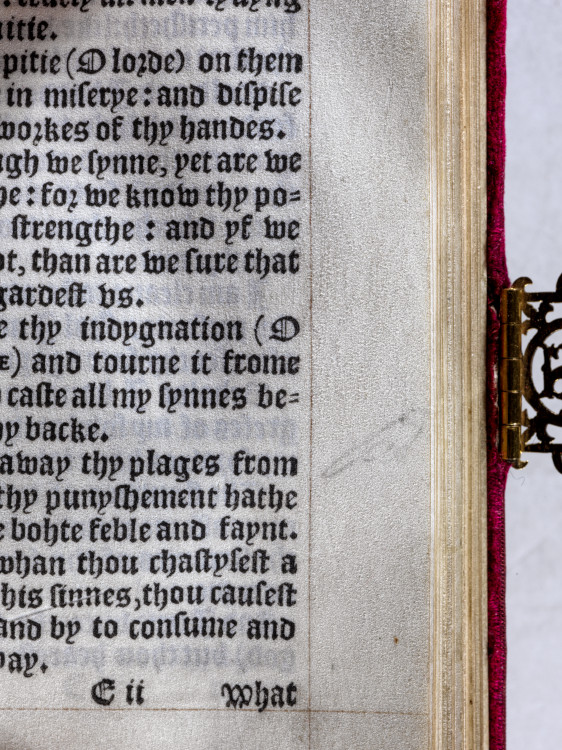 pitie (O lorde) on them
in miſerye: and diſpiſe
workes of thy handes.
ugh we ſynne, yet are we
ne: for we know thy po=
ſtrengthe : and yf we
ot, than are we ſure that
gardeſt vs.
e thy indygnation (O
E) and tourne it frome
caſte all my ſynnes be=
hy backe.
away thy plages from
thy punyſhement hathe
e bohte feble and faynt.
whan thou chaſtyſeſt a
his ſinnes, thou cauſeſt
and by to conſume and
way.
E ii What